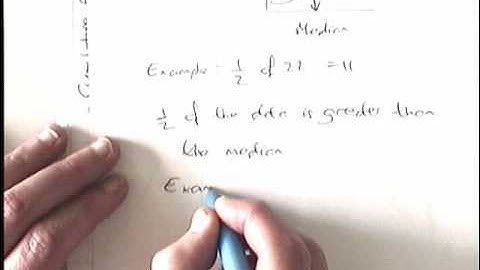 Median
Example: 1/2 of 22 = 11
1/2 of the data is greater than
the median
Exam